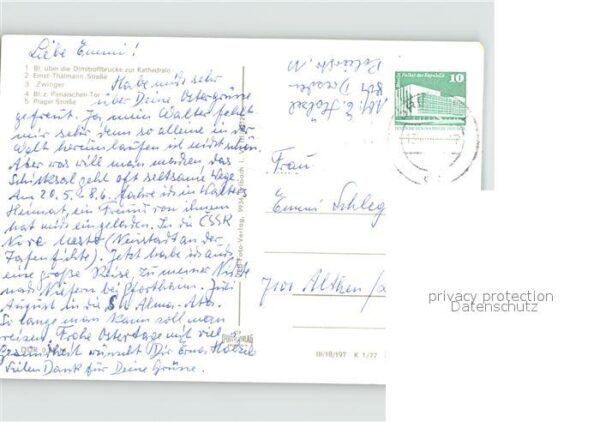 Liebe Emmi!
1 Bl. über die Dimitroffbrücke zur Kathedrale
2 Ernst-Thälmann-Straße
3 Zwinger
4 Bl. z. Pirnaischen Tor
5 Prager Straße
Habe mich sehr
über Deine Ostergrüsse
gefreut. Ja, mein Walter fehlt
mir sehr, denn so alleine in der
Welt herumlaufen ist nicht schön.
Aber was will man machen, das
Schicksal geht oft seltsame Wege.
Am 20.5. - 8.6. fahre ich in Walters
Heimat, ein Freund von ihm
hat mich eingeladen. In die ČSSR
Nové Mesto (Neustadt an der
Tafelfichte). Jetzt habe ich auch
eine große Reise, zu meiner Nichte
nach Niefern bei Pforzheim. Juli
August in die SU Alma-Ata.
So lange man kann soll man
reisen. Frohe Ostertage mit viel
Gesundheit wünscht Dir Erna
Vielen Dank für Deine Grüsse.
Foto-Verlag, 9934
III/18/197 K 1/77
Dresden
Palast der Republik
10
DEUTSCHE DEMOKRATISCHE REPUBLIK
Frau
Emmi Schleg
7101 Althen
privacy protection
Datenschutz